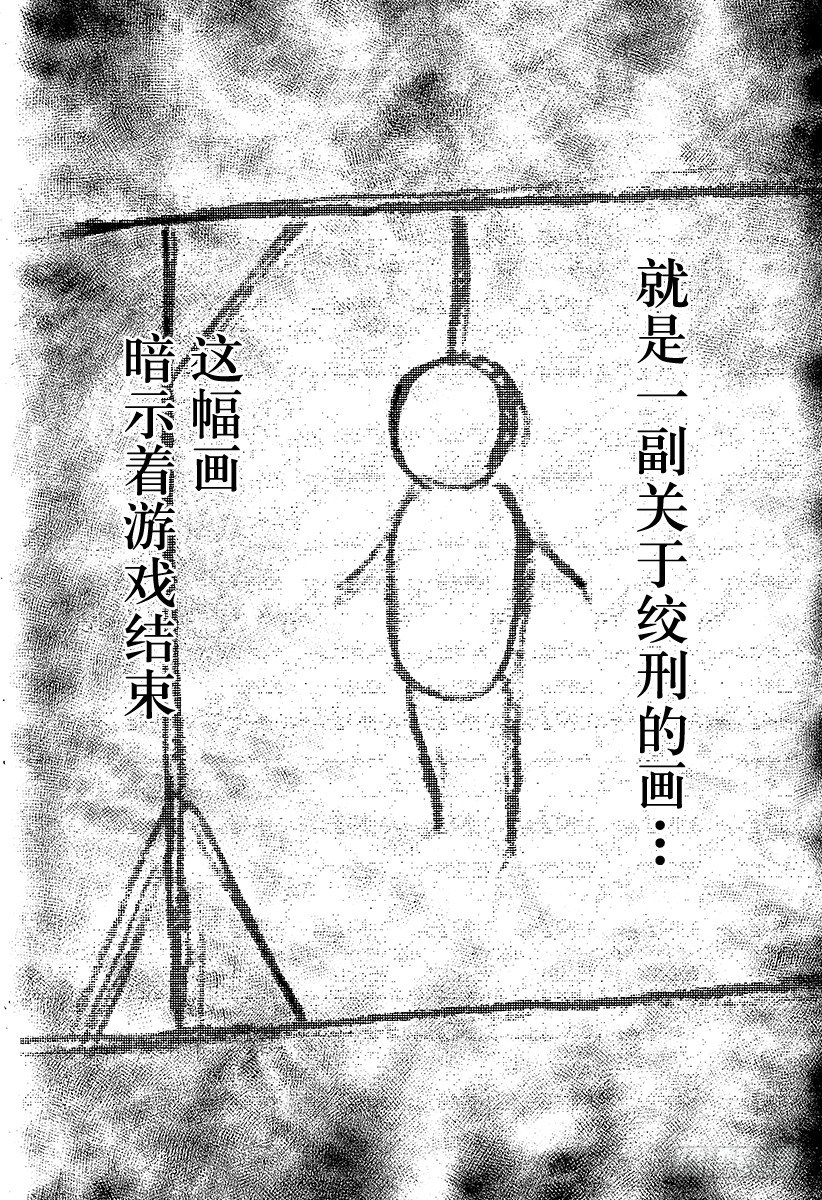 就是一副关于绞刑的画…
这幅画
暗示着游戏结束